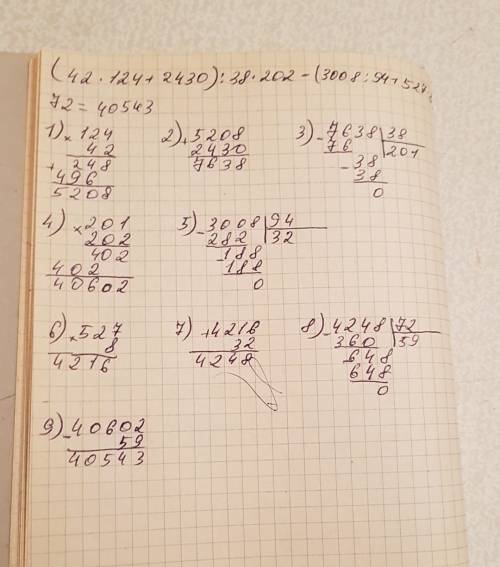 (42·124+2430):38·202-(3008:94+527
72=40543
1) ×124 2) +5208 3) -7638 |38
42 2430 76 |201
+248 7638 -38
496 38
5208 0
4) ×201 5) -3008 |94
202 282 |32
402 -188
402 188
40602 0
6) ×527 7) +4216 8) -4248 |72
8 32 360 |59
4216 4248 -648
648
0
9) -40602
59
40543